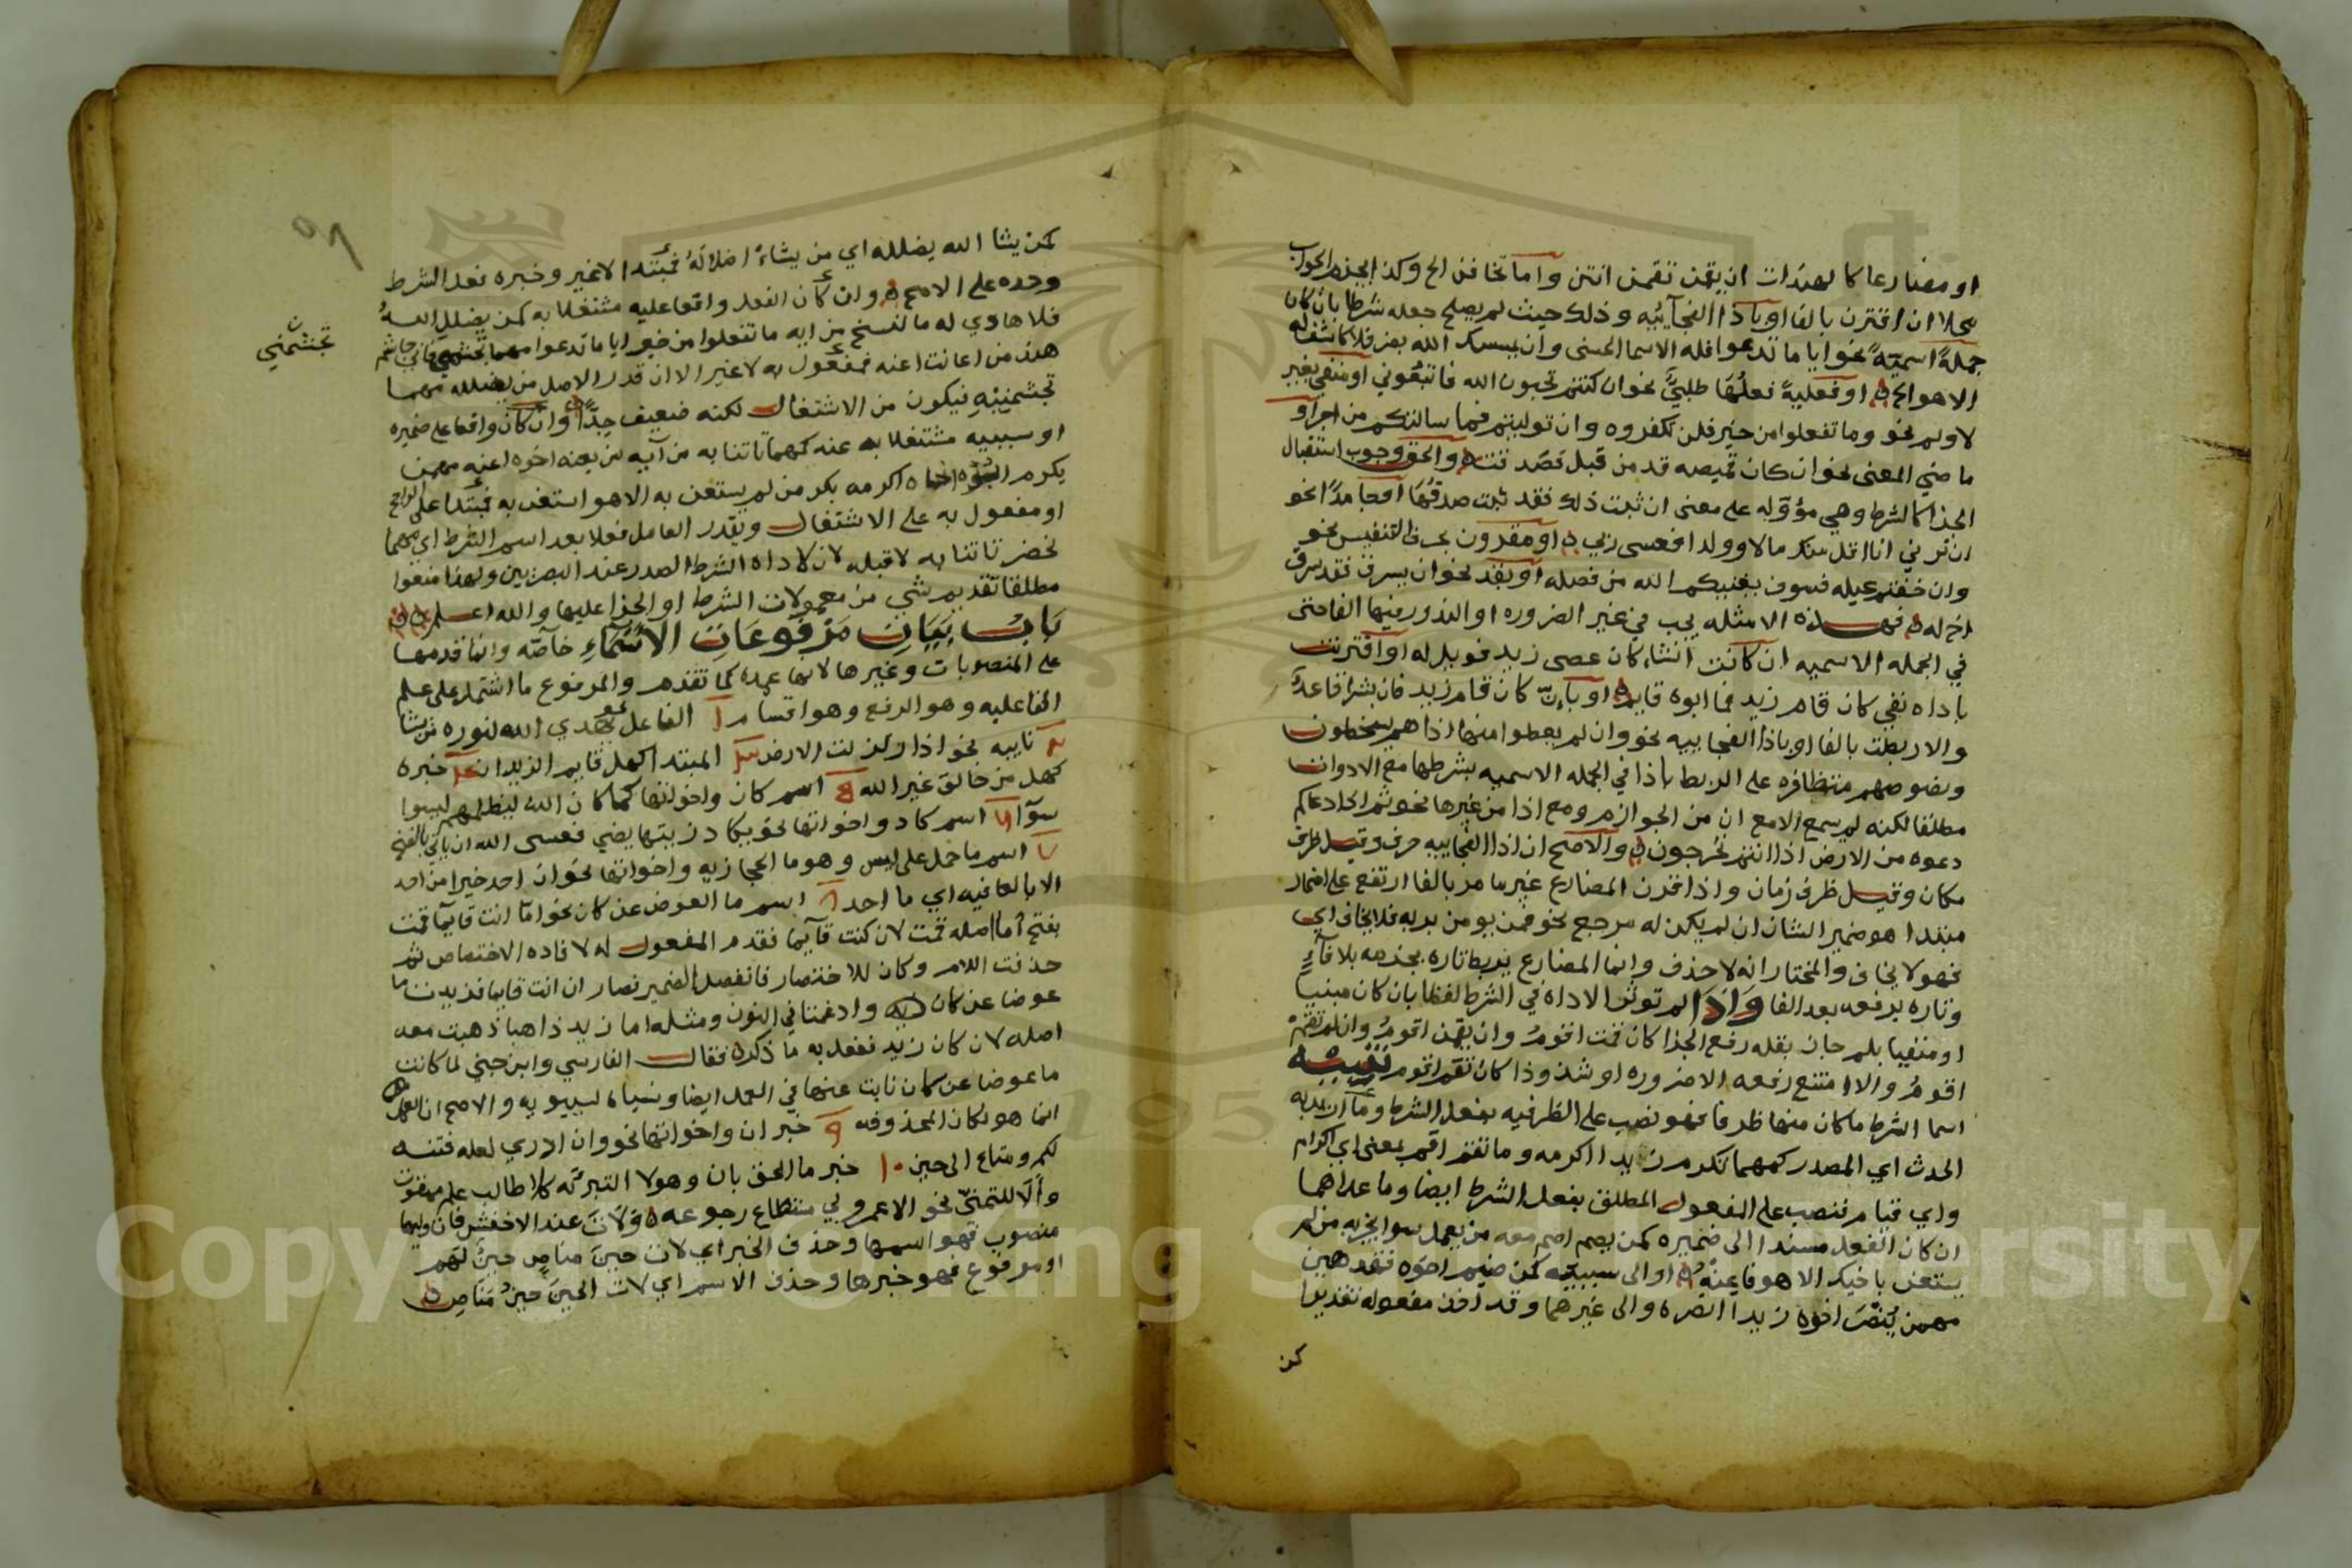 او مضارعا كالهندات ان يقمن تقمن انتن واما تخافن الخ وكذا الجزم الجواب
محلا ان اقترن بالفا او باذا الفجآئيه وذلك حيث لم يصلح جعله شرطا بان كان
جملةً اسميّةً نحو ايا ما تدعوا فله الاسما الحسنى وان يمسسك الله بضر فلا كاشف له
الا هو الخ او فعليةً فعلُهَا طلبيٌّ نحو ان كنتم تحبون الله فاتبعُوني او منفي بغير
لا ولم نحو وما تفعلوا من خير فلن تكفروه وان توليتم فما سالتكم من اجر او
ماضي المعنى نحو ان كان قميصه قد من قبل فصَدقت والحق وجوب استقبال
الجزا كالشرط وهي مؤوّله على معنى ان ثبت ذلك فقد ثبت صدقُهَا او جامدًا نحو
ان ترني انا اقل منك مالا وولدا فعسى ربي او مقرون بحرف التنفيس نحو
وان خفتم عيله فسوف يغنيكم الله من فضله او بقد نحو ان يسرق فقد سرق
اخ له فهذه الامثله يجب في غير الضروره او الندور فيها الفا حتى
في الجمله الاسميه ان كانت انشاء كان عصى زيد فويل له او اقترنت
باداه نفي كان قام زيد فما ابوه قايم او بإنّ كان قام زيد فان بشرا قاعدٌ
والا ربطت بالفا او باذا الفجاييه نحو وان لم يعطوا منها اذا هم يسخطون
ونصوصهم متظافره على الربط باذا في الجمله الاسميه بشرطها مع الادوات
مطلقا لكنه لم يسمع الا مع ان من الجوازم ومع اذا من غيرها نحو ثم اذا دعاكم
دعوه من الارض اذا انتم تخرجون والاصح ان اذا الفجاييه حرف وقيل ظرف
مكان وقيل ظرف زمان واذا قرن المضارع غير ما مر بالفا ارتفع على اضمار
مبتدا هو ضمير الشان ان لم يكن له مرجع نحو فمن يومن بربه فلا يخاف اي
فهو لا يخاف والمختار انه لا حذف وانما المضارع يربط تاره بجزمه بلا فآءٍ
وتاره برفعه بعد الفا وَاذَا لم توثر الاداة في الشرط لفظا بان كان مبنيا
او منفيا بلم جاز بقله رفع الجزا كان قمت اقومُ وان يقمن اقومُ وان لم تقمْ
اقومُ والا امتنع رفعه الا ضروره او شذوذا كان تقم اقوم تنبيه
اسما الشرط ما كان منها ظرفا فهو نصب على الظرفيه بفعل الشرط وما اريد به
الحدث اي المصدر كمهما تكرم زيدا اكرمه وما تقم اقم بمعنى اي اكرام
واي قيام فنصب على المفعول المطلق بفعل الشرط ايضا وما عداهما
ان كان الفعل مسندا الى ضميره كمن يصم اصم معه من يعمل سوا يجز به من لم
يستعن باخيك الا هو فاعنْهُ او الى سببيّه كمن صيم اخوه فقد هين
مهمن يُنصَر اخوه زيدا انصره والى غيرهما وقد اخذ مفعوله تقديرا
كمن
كمن يشا الله يضلله اي من يشاءُ اضلالَهُ فمُبتَدا لا غير وخبره فعل الشرط
وحده على الاصح وان كان الفعل واقعا عليه مشتغلا به كمن يضلل اللهُ
فلا هادي له ما ننسخ من ايه ما تفعلوا من خير ايا ما تدعوا مهما تجشمني فاني جاشم
هند من اعانت اعنه فمفعول به لا غير الا ان قدر الاصل من يضلله مهما
تجشمنيْهِ فيكون من الاشتغال لكنه ضعيف جدًّا وان كان واقعا على ضميره
او سببيه مشتغلا به عنه كمهما تاتنا به من آيه من يعنه اخوه اعنه مهمن
يكرم اخاه اكرمه بكر من لم يستعن به الا هو استعن به فمبتدا على الراجح
او مفعول به على الاشتغال ويقدر العامل فعلا بعد اسم الشرط اي مهما
تحضر تاتنا به لا قبله لان لاداه الشرط الصدر عند البصريين ولهذا منعوا
مطلقا تقديم شي من معمولات الشرط او الجزا عليها والله اعلم
بَابُ بَيَانِ مَرْفُوعَاتِ الأَسْمَاءِ خآصّه وانما قدمها
على المنصوبات وغيرها لانها عمده كما تقدم والمرفوع ما اشتمل على علم
الفاعليه وهو الرفع وهو اقسام ١ الفاعل نحو يهدي الله لنوره من يشا
٢ نايبه نحو اذا زلزلت الارض ٣ المبتدا كهل قايم الزيدان ٤ خبره
كهل من خالق غير الله ٥ اسم كان واخواتها كما كان الله ليظلمهم ليسوا
سوآ ٦ اسم كاد واخواتها نحو يكاد زيتها يضي فعسى الله ان ياتي بالفتح
٧ اسم ما حمل على ليس وهو ما الحجازيه واخواتها نحو ان احد خيرا من احد
الا بالعافيه اي ما احد ٨ اسم ما العوض عن كان نحو امّا انت قايما قمت
بفتح أما اصله قمت لان كنت قآيما فقدم المفعول له لافاده الاختصاص ثم
حذفت اللام وكان للاختصار فانفصل الضمير فصار ان انت قايما فزيدت ما
عوضا عن كان وادغمتا في النون ومثله اما زيد ذاهبا ذهبت معه
اصله لان كان زيد ففعل به ما ذكر فقال الفارسي وابن جني لما كانت
ما عوضا عن كان نابت عنها في العمل ايضا ونسباه لسيبويه والاصح ان العمل
انما هو لكان المحذوفه ٩ خبر ان واخواتها نحو وان ادري لعله فتنه
لكم ومتاع الى حين ١٠ خبر ما الحق بان وهو لا التبرئه كلا طالب علم ممقوت
وألاَ للتمنيّ نحو الا عمر ولي مستطاع رجوعه وَلاَتَ عند الاخفش فان وليها
منصوب فهو اسمها وحذف الخبر اي لات حينَ مناصٍ حينٌ لهم
او مرفوع فهو خبرها وحذف الاسم اي لات الحينَ حينُ مَنَاصٍ
تجشمني